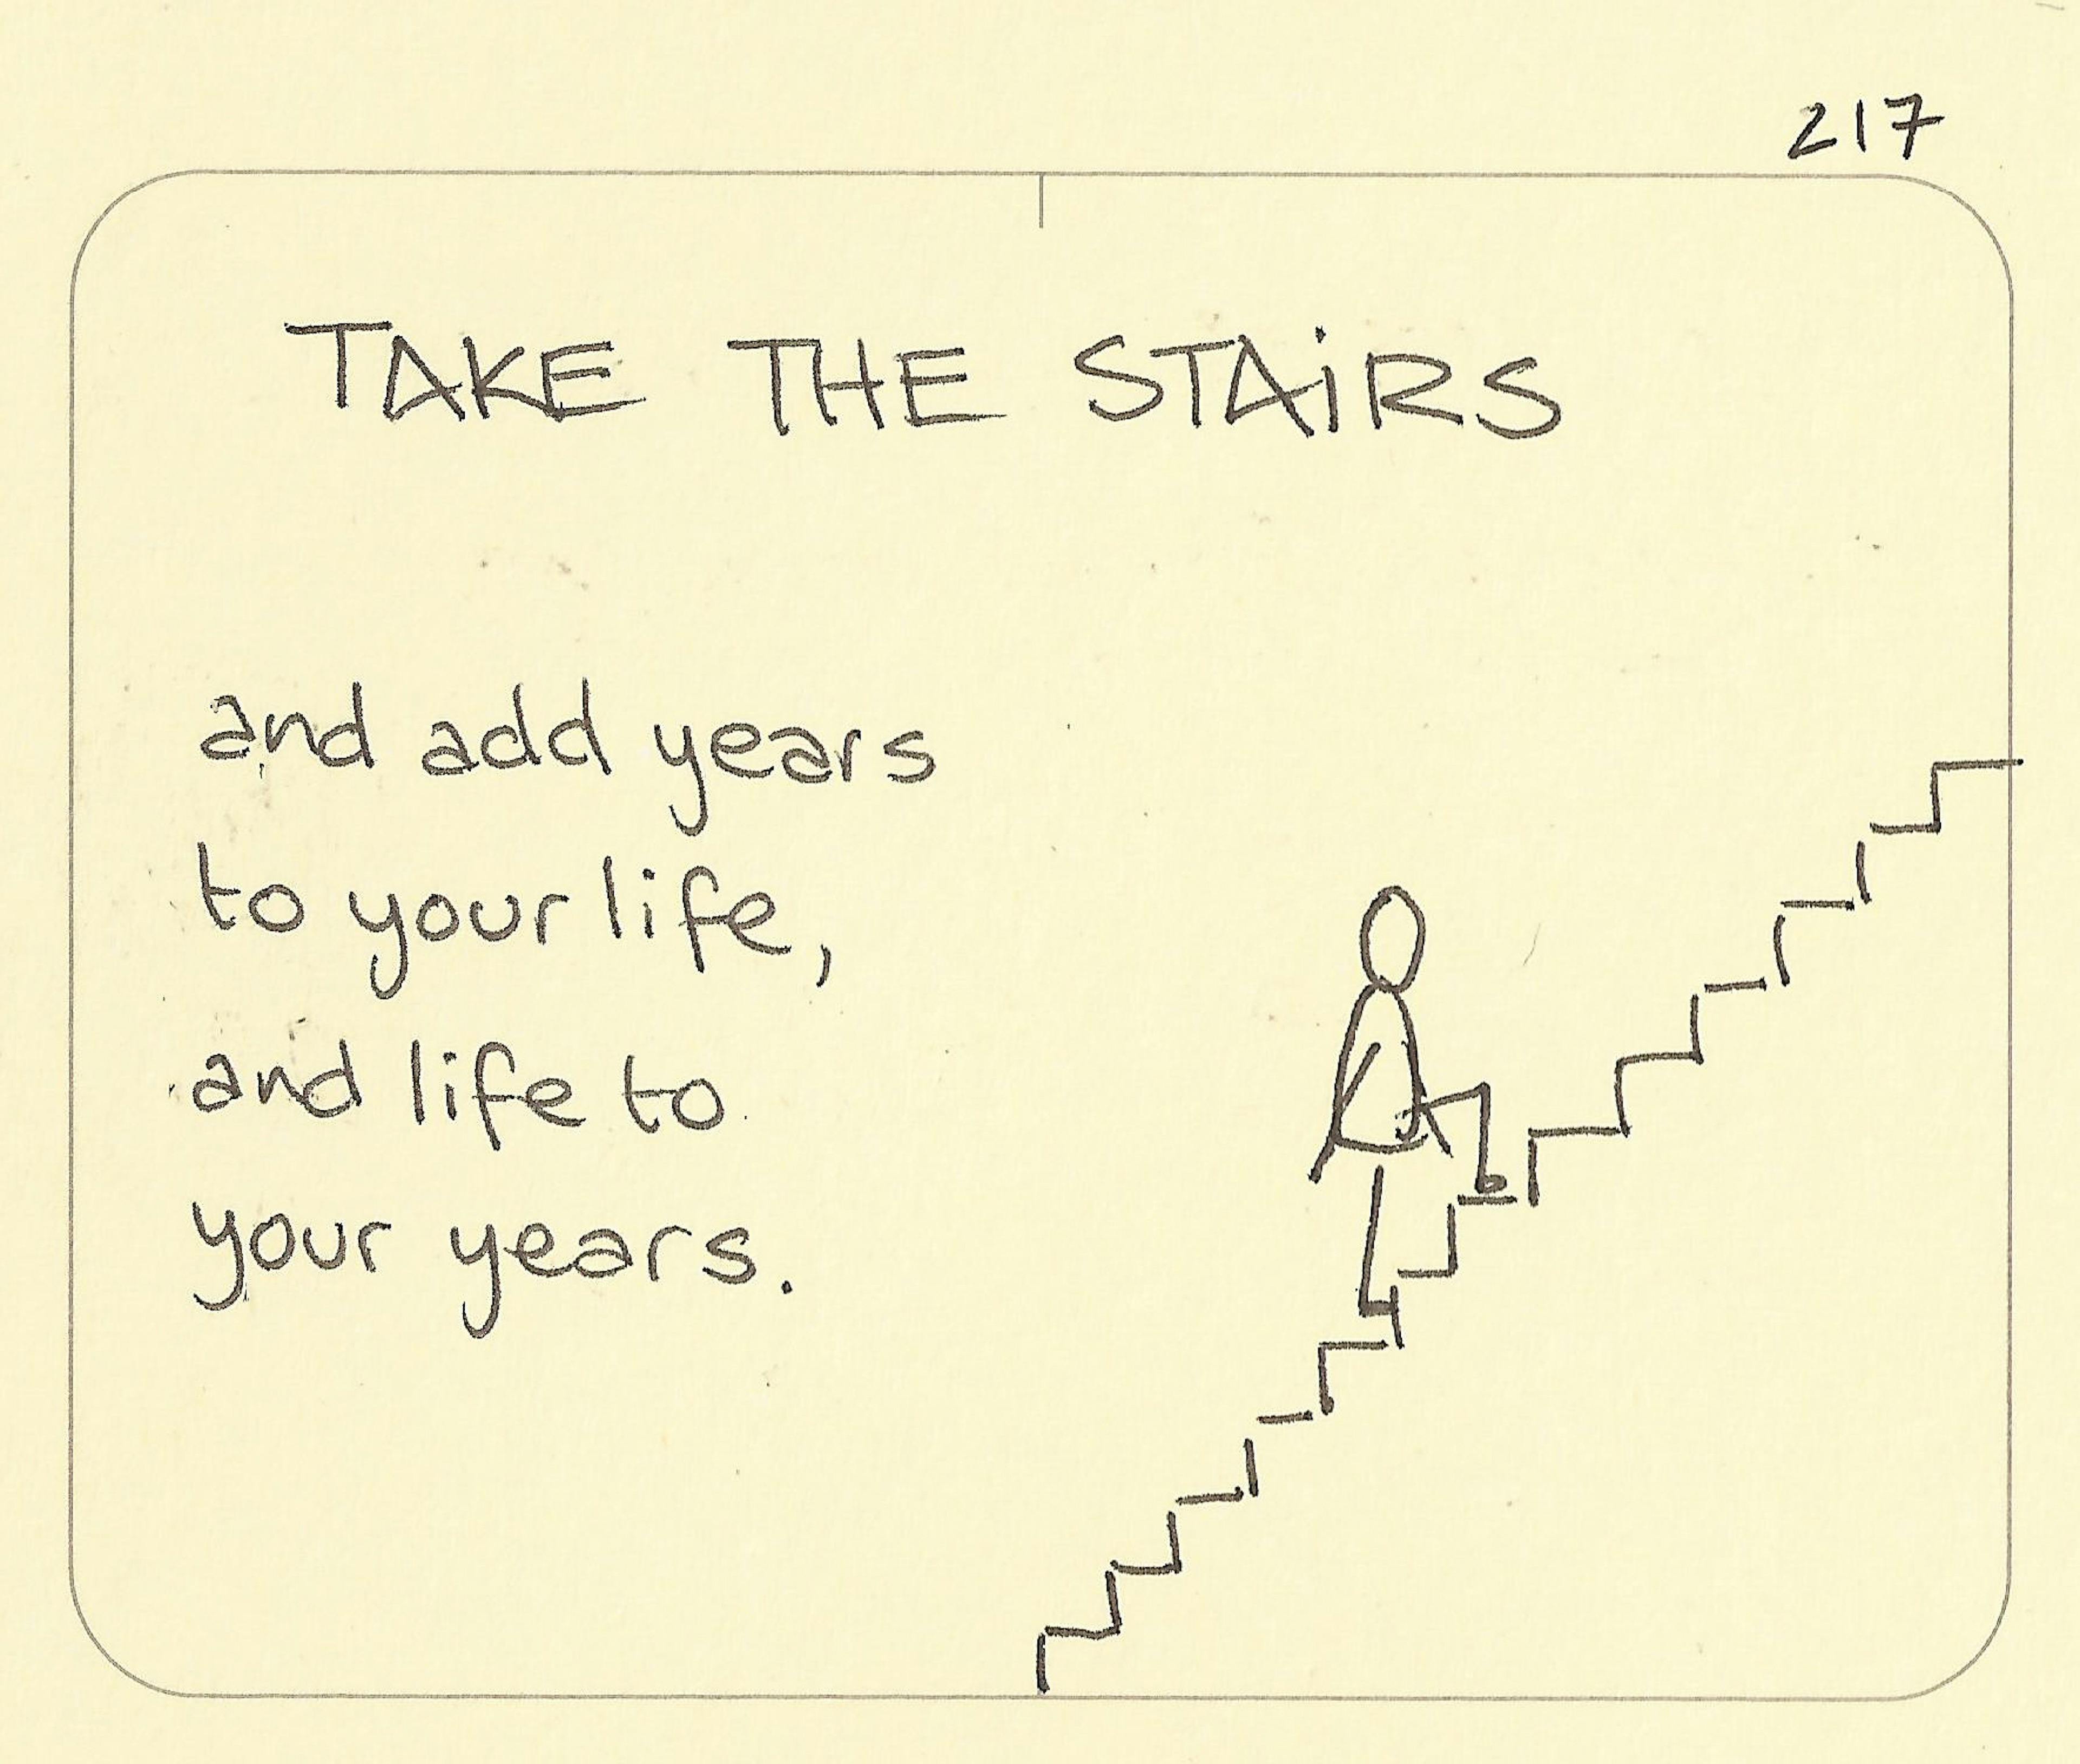 217
TAKE THE STAiRS
and add years
to your life,
and life to
your years.